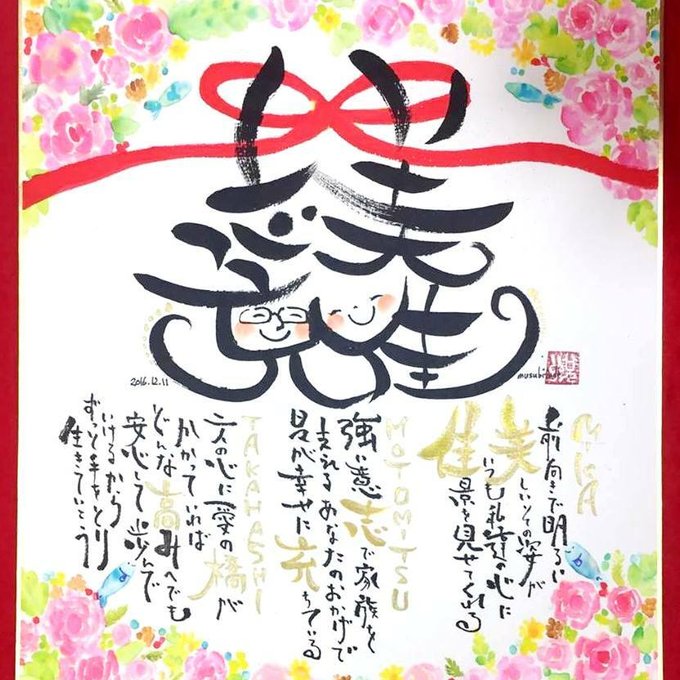 2016.12.11
MIKA
前向きで明るい
美しいその姿が
いつも私達の心に
佳景を見せてくれる
MOTOMITSU
強い意志で家族を
支えるあなたのおかげで
皆が幸せに充ちている
TAKAHASHI
二人の心に愛の橋が
かかっていれば
どんな高みへでも
安心して歩んで
いけるから
ずっと手をとり
生きていこう